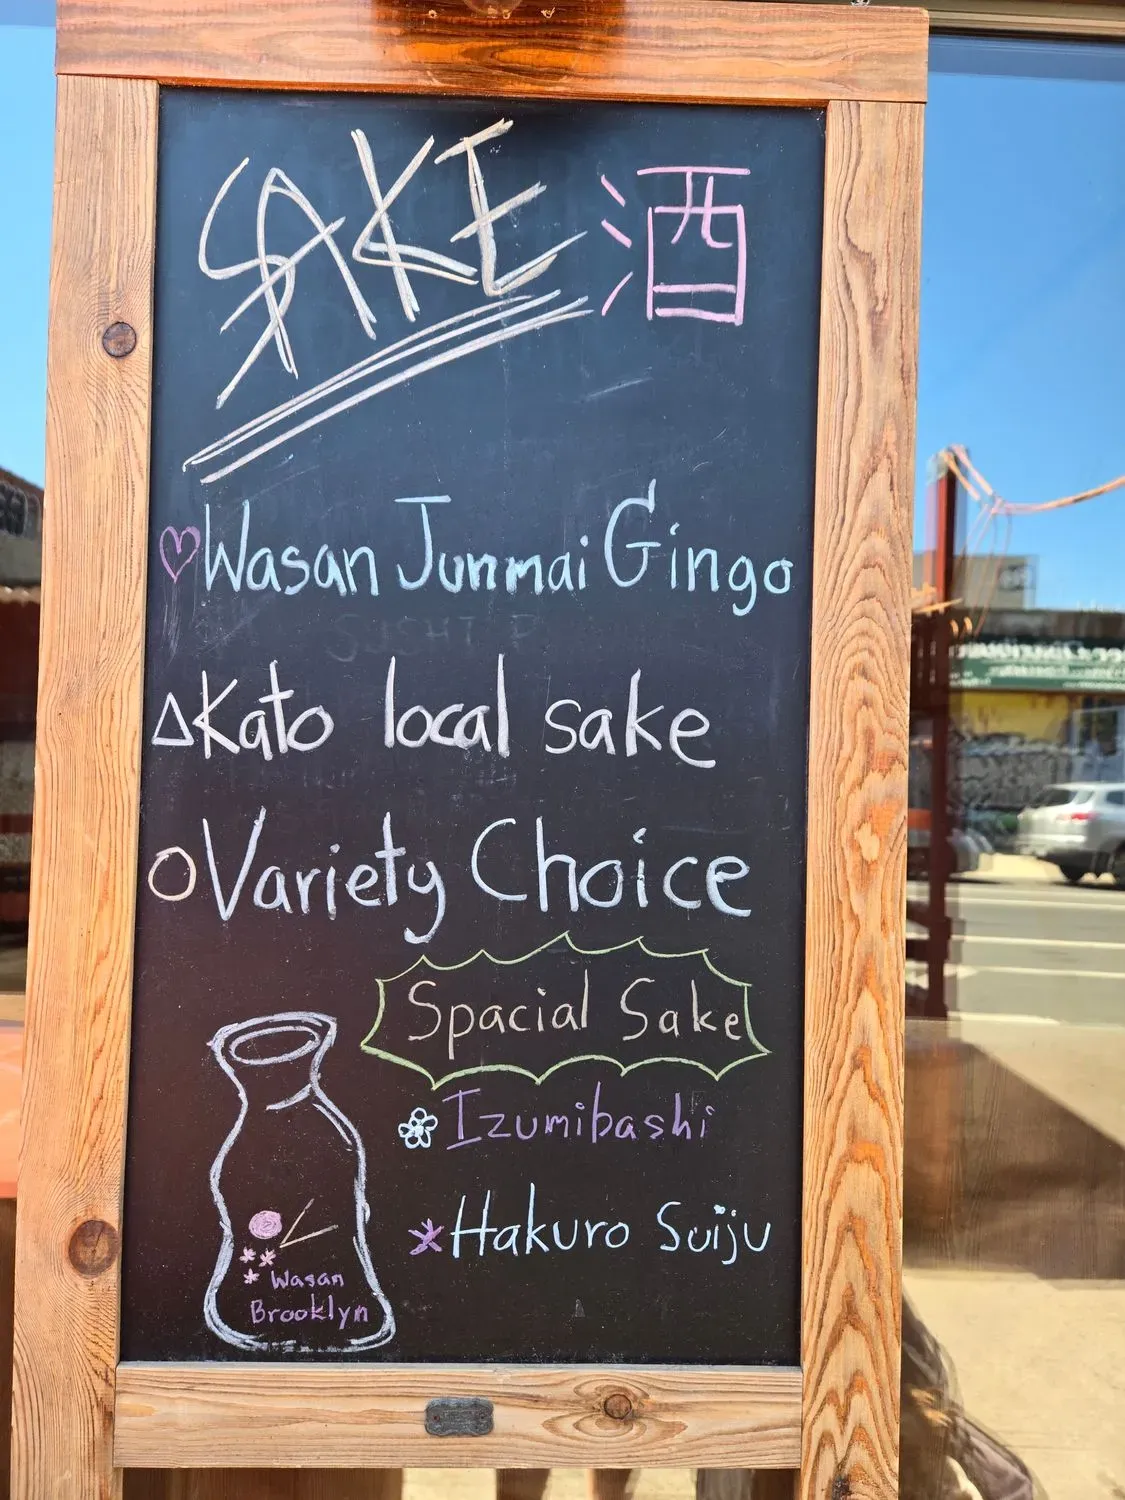 SAKE 酒
Wasan Junmai Gingo
Kato local sake
Variety Choice
Spacial Sake
Izumibashi
Hakuro Suiju
Wasan
Brooklyn